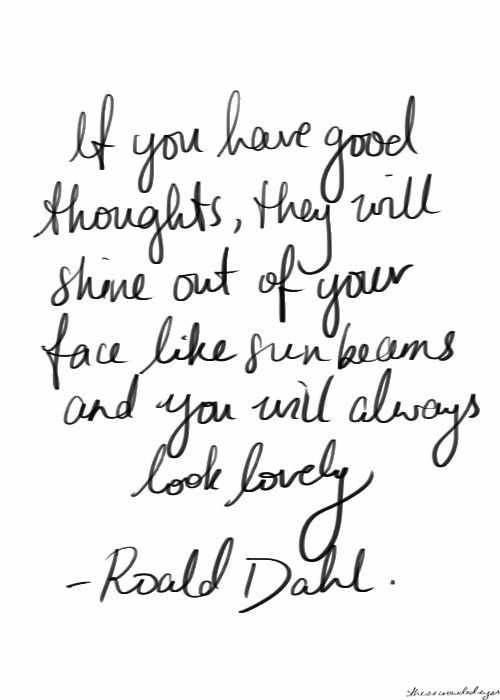 If you have good
thoughts, they will
shine out of your
face like sunbeams
and you will always
look lovely
-Roald Dahl.